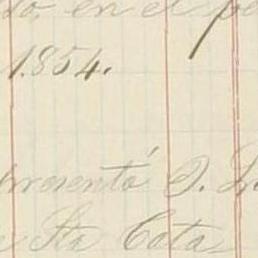 do, en el pe
1.854.
presentó D. L
Sta Cata